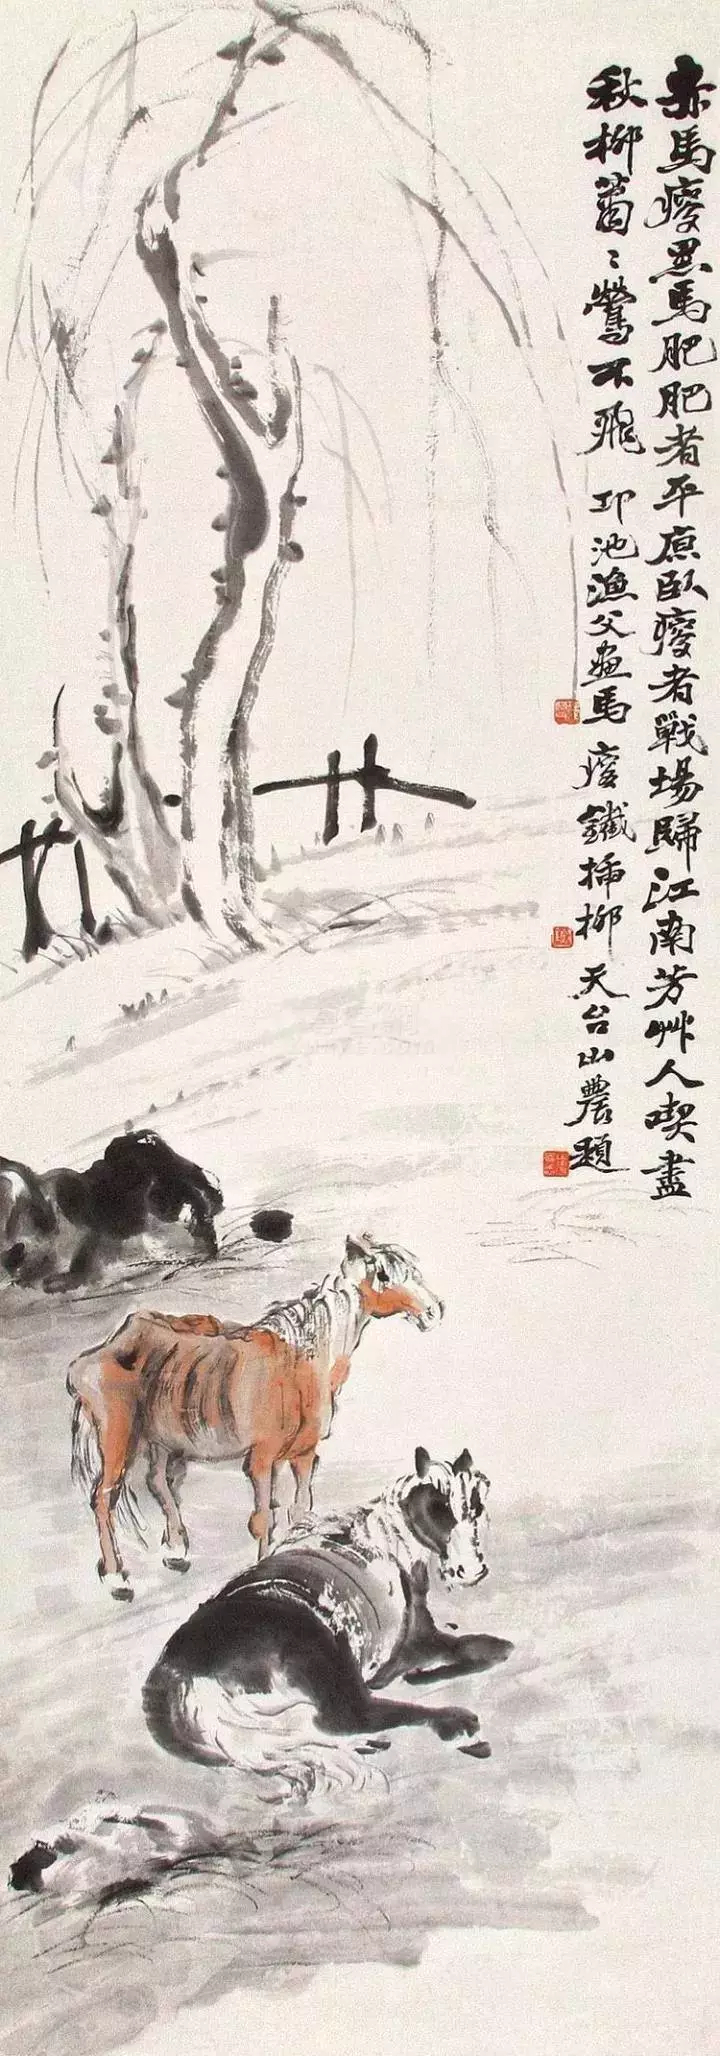 赤馬瘦黑馬肥肥者平原臥瘦者戰場歸江南芳艸人喫盡
秋柳蕭〻鶯不飛 邛池漁父畫馬 瘦鐵插柳 天台山農題